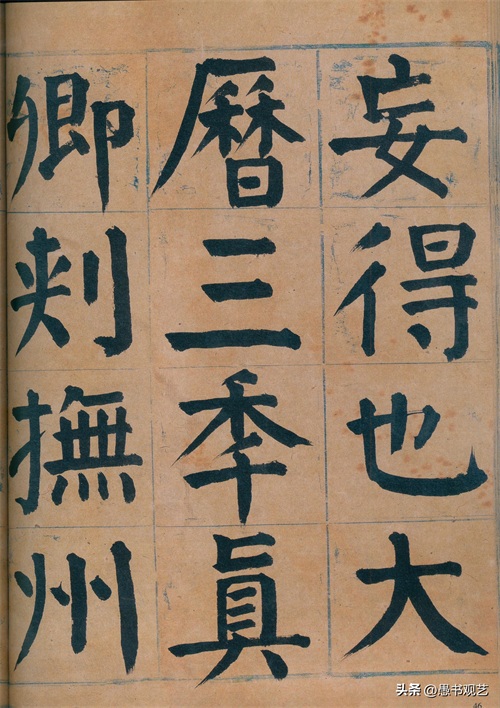 妄得也大
曆三年真
卿刺撫州
46
头条@愚书观艺